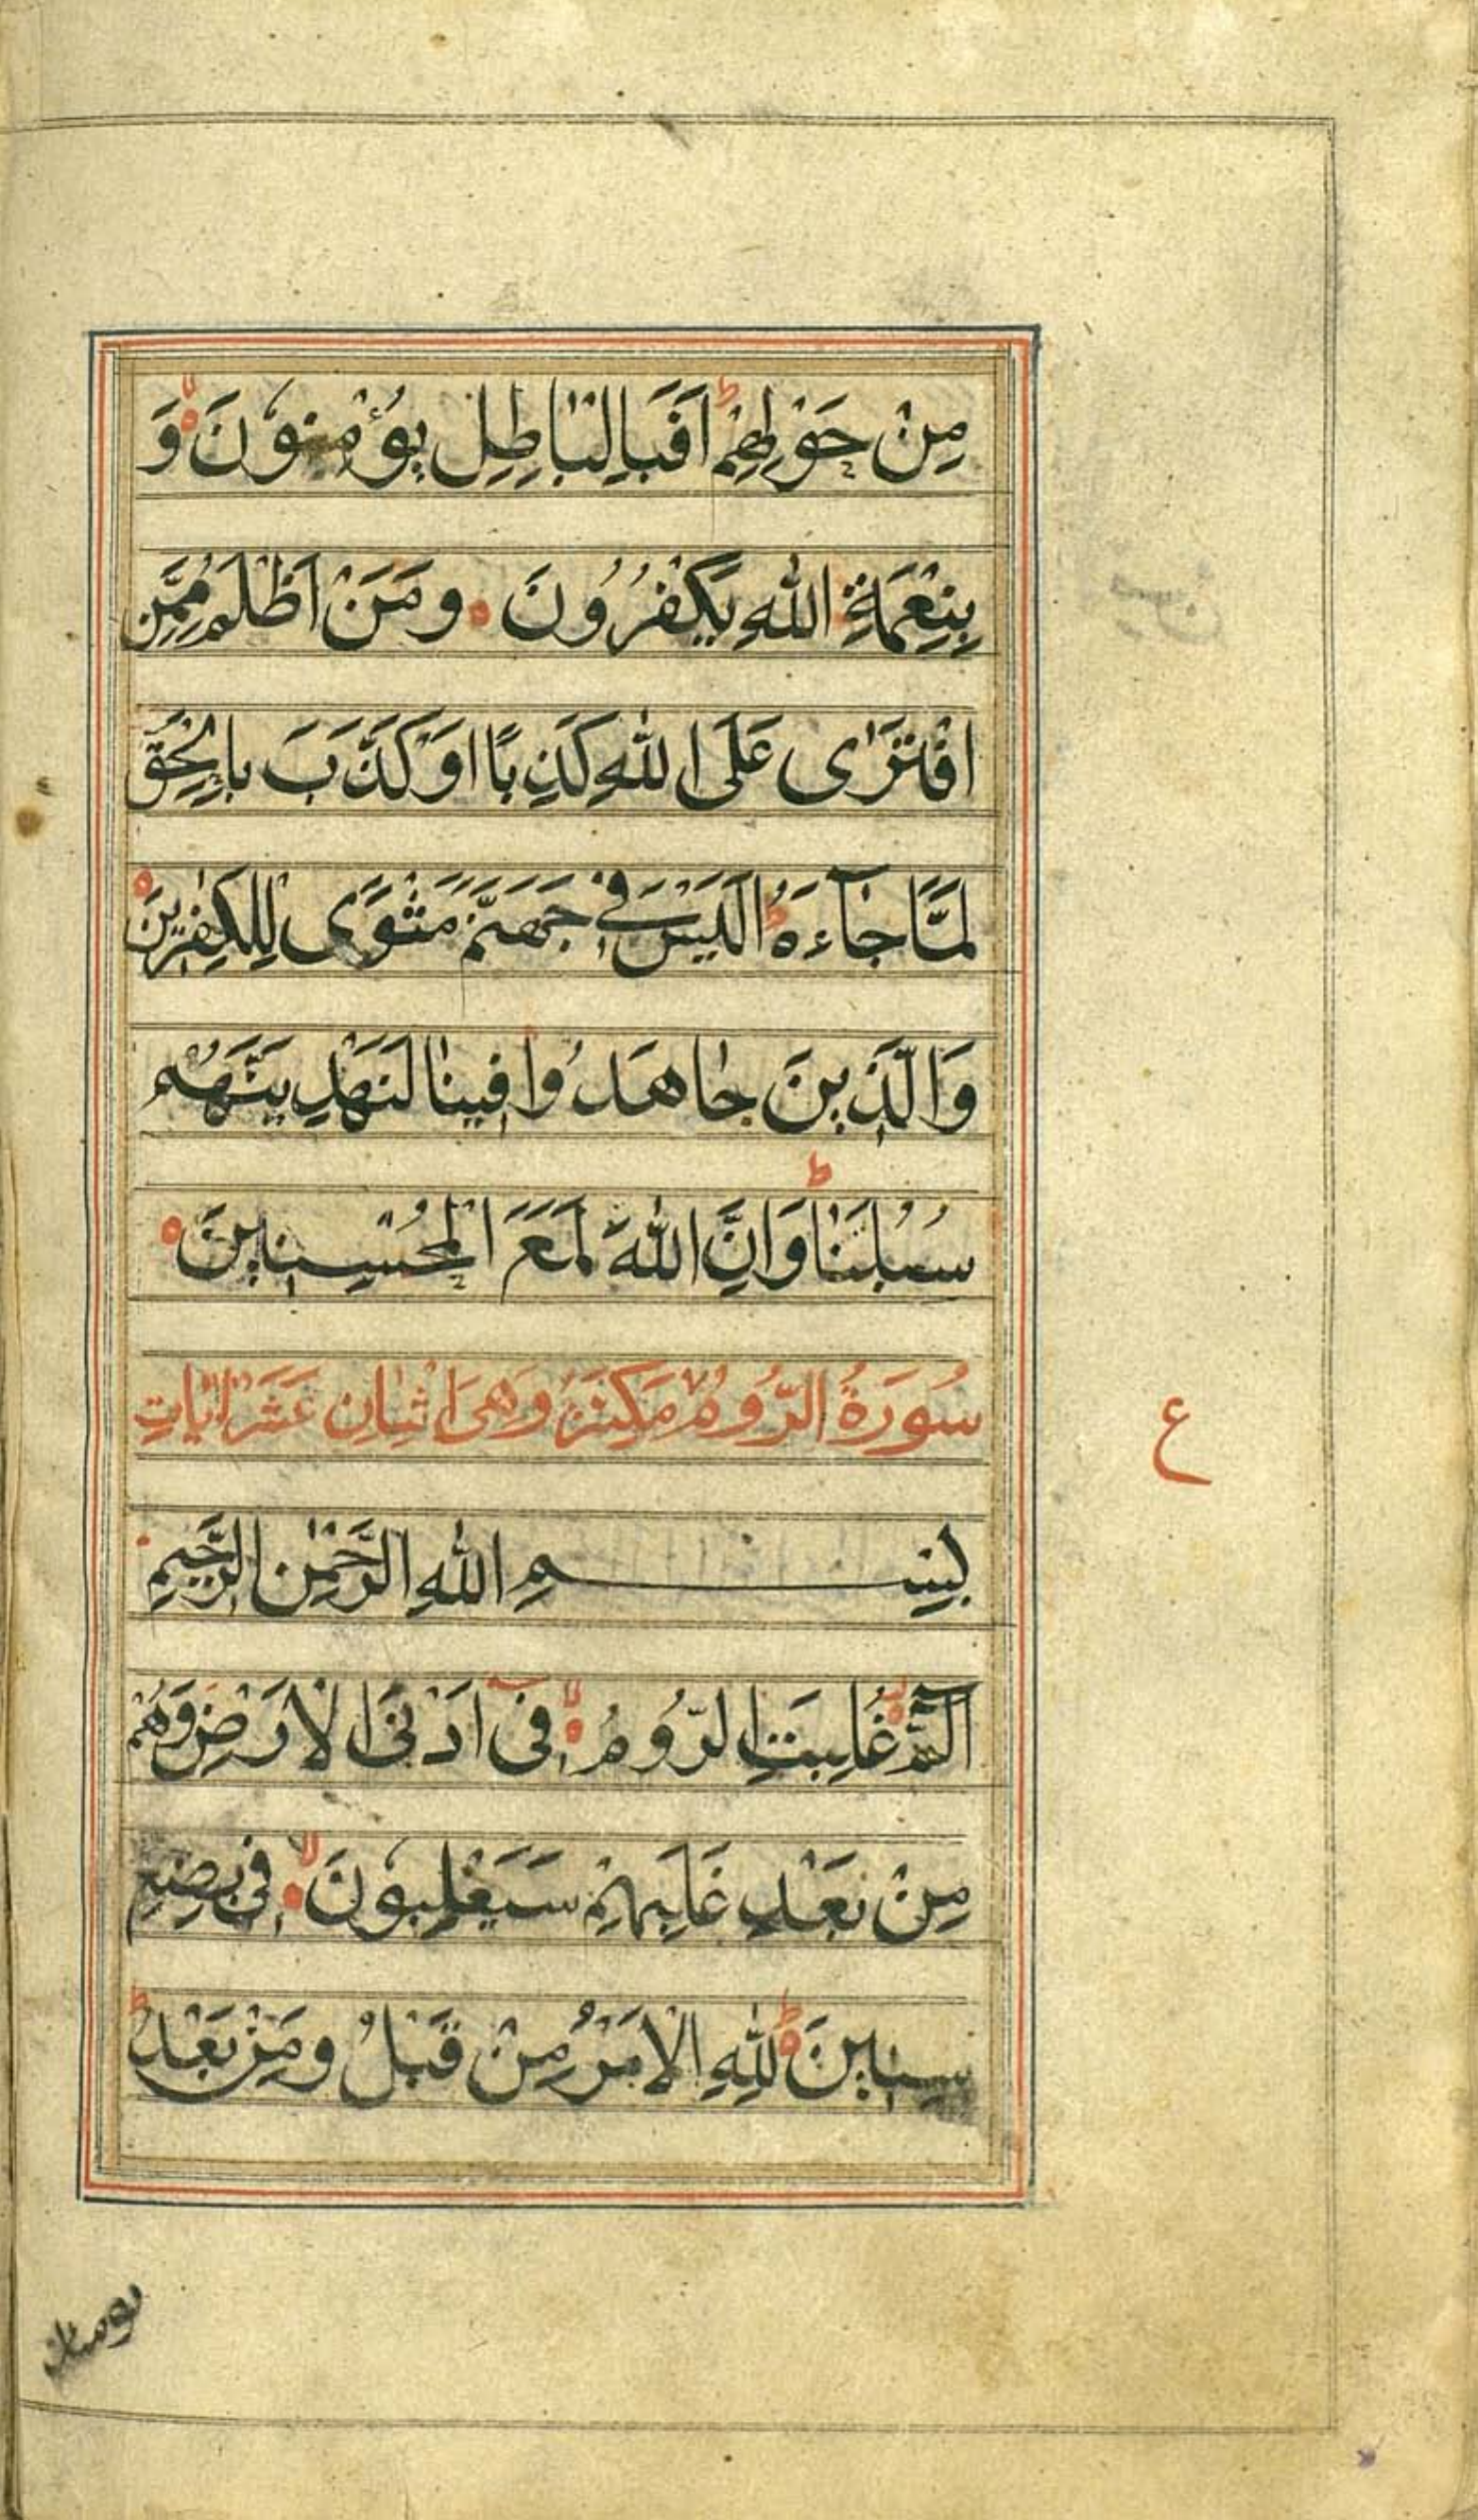 مِنْ حَوْلِهِمْ ط اَفَبِالْبَاطِلِ يُؤْمِنُوْنَ وَ
بِنِعْمَةِ اللّٰهِ يَكْفُرُوْنَ وَمَنْ اَظْلَمُ مِمَّنِ
افْتَرٰى عَلَى اللّٰهِ كَذِبًا اَوْ كَذَّبَ بِالْحَقِّ
لَمَّا جَآءَهُ ط اَلَيْسَ فِيْ جَهَنَّمَ مَثْوًى لِلْكٰفِرِيْنَ
وَالَّذِيْنَ جَاهَدُوْا فِيْنَا لَنَهْدِيَنَّهُمْ
سُبُلَنَا ط وَاِنَّ اللّٰهَ لَمَعَ الْمُحْسِنِيْنَ
سُوْرَةُ الرُّوْمُ مَكِيَّةٌ وَهِىَ اثْنَانِ عَشَرَ اٰيَاتِ
ع
بِسْمِ اللّٰهِ الرَّحْمٰنِ الرَّحِيْمِ
الٓمّٓ غُلِبَتِ الرُّوْمُ فِىْٓ اَدْنَى الْاَرْضِ وَهُمْ
مِنْ بَعْدِ غَلَبِهِمْ سَيَغْلِبُوْنَ فِيْ بِضْعِ
سِنِيْنَ ط لِلّٰهِ الْاَمْرُ مِنْ قَبْلُ وَمِنْ بَعْدُ ط